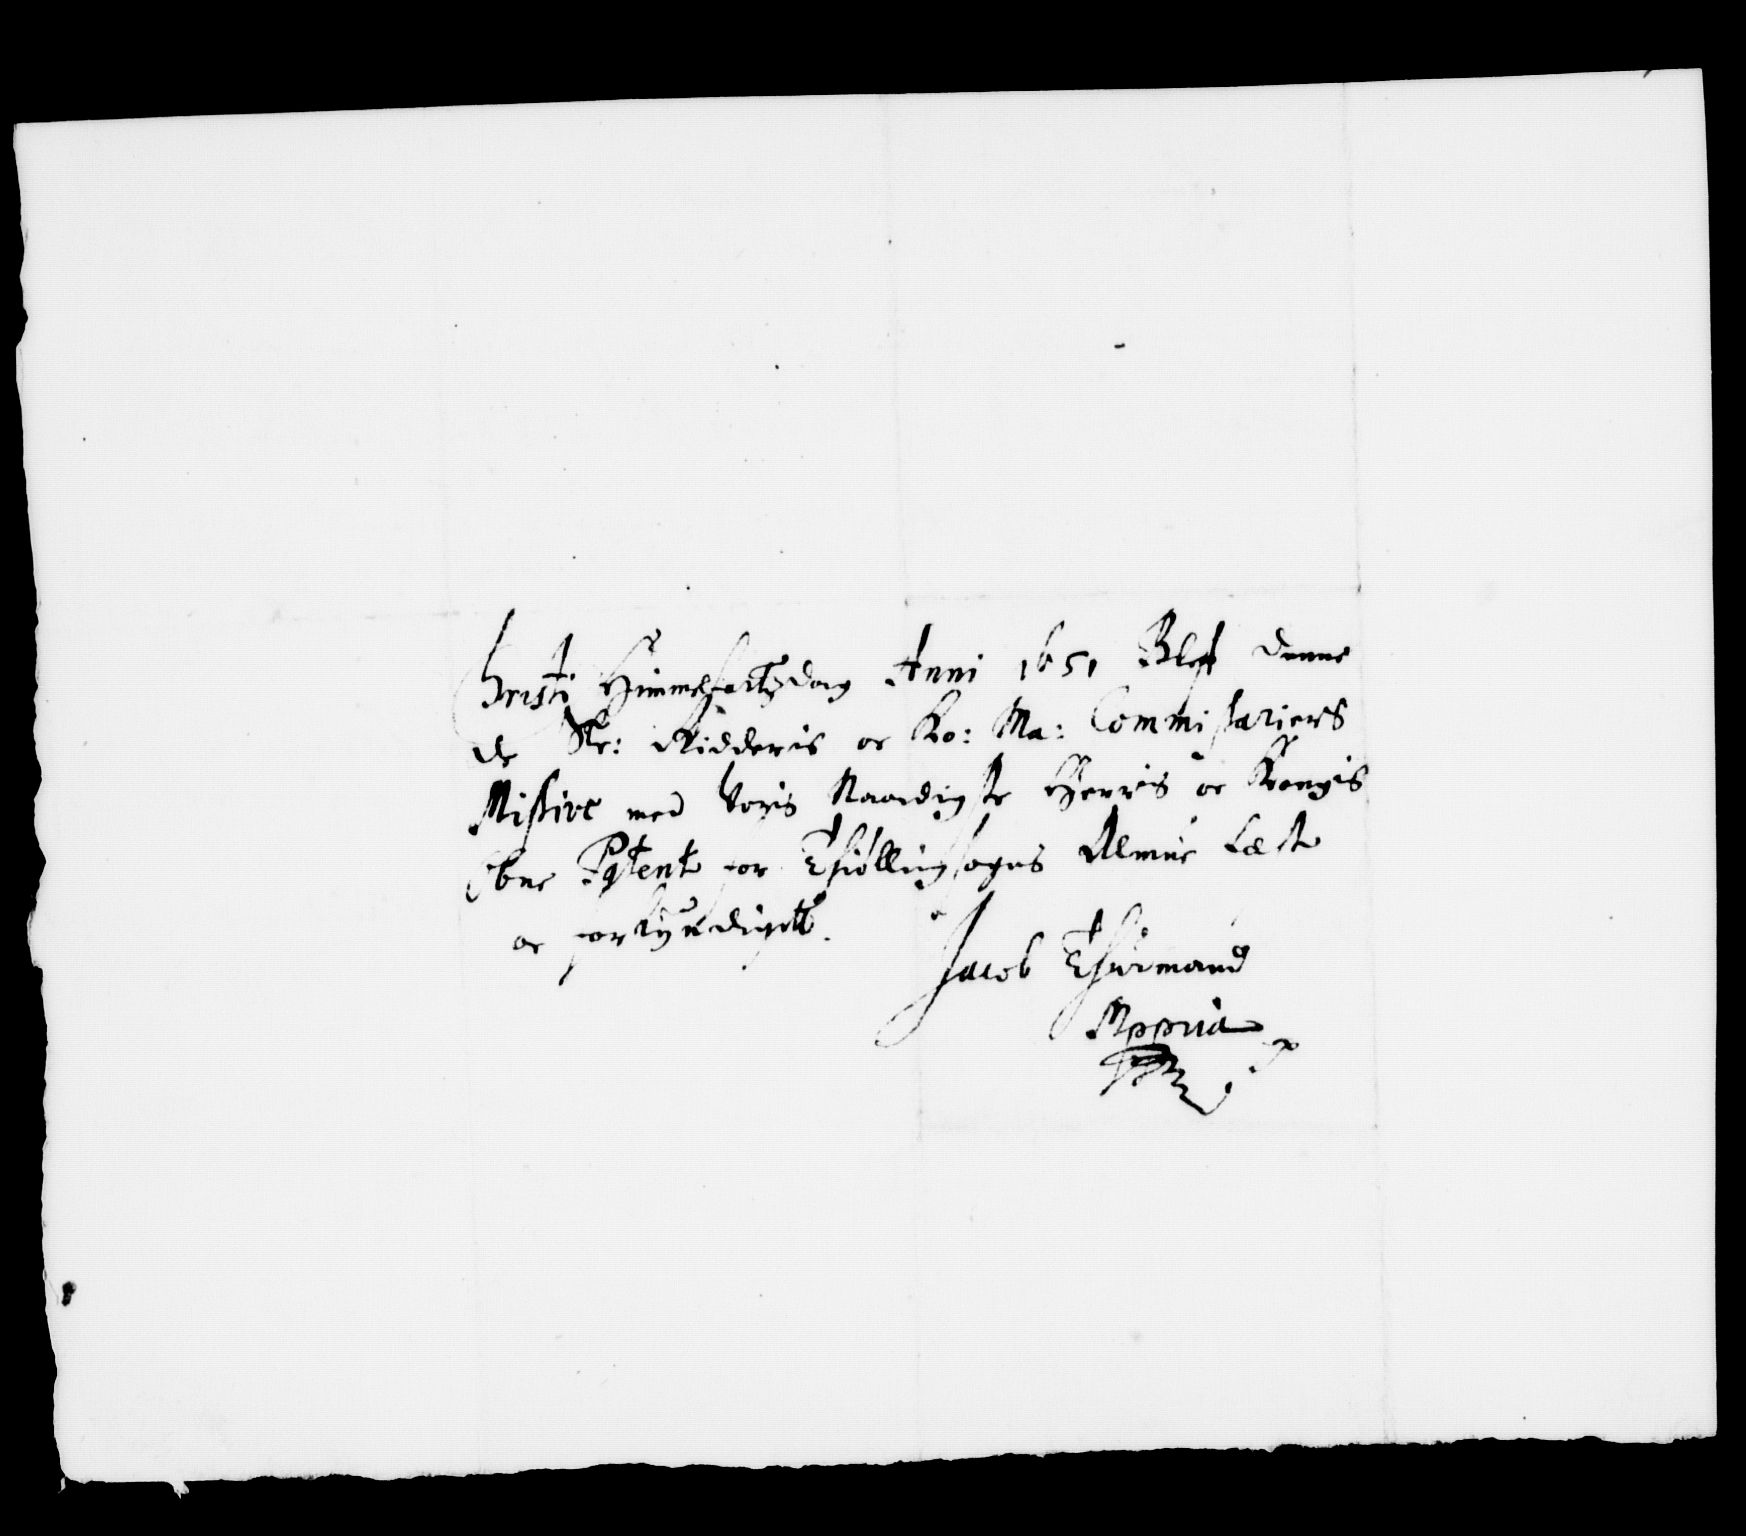 Christi Himmelfartzdag Anni 1651 Blef denne
de Str: Ridderis oc Ko: Ma: Commissariers
Missive med Voris Naadigste Herris oc Kongis
Obne Patent for Thiøllingsogns Almue Læste
oc forkyndigett.
Jacob Thurmand
Mppria